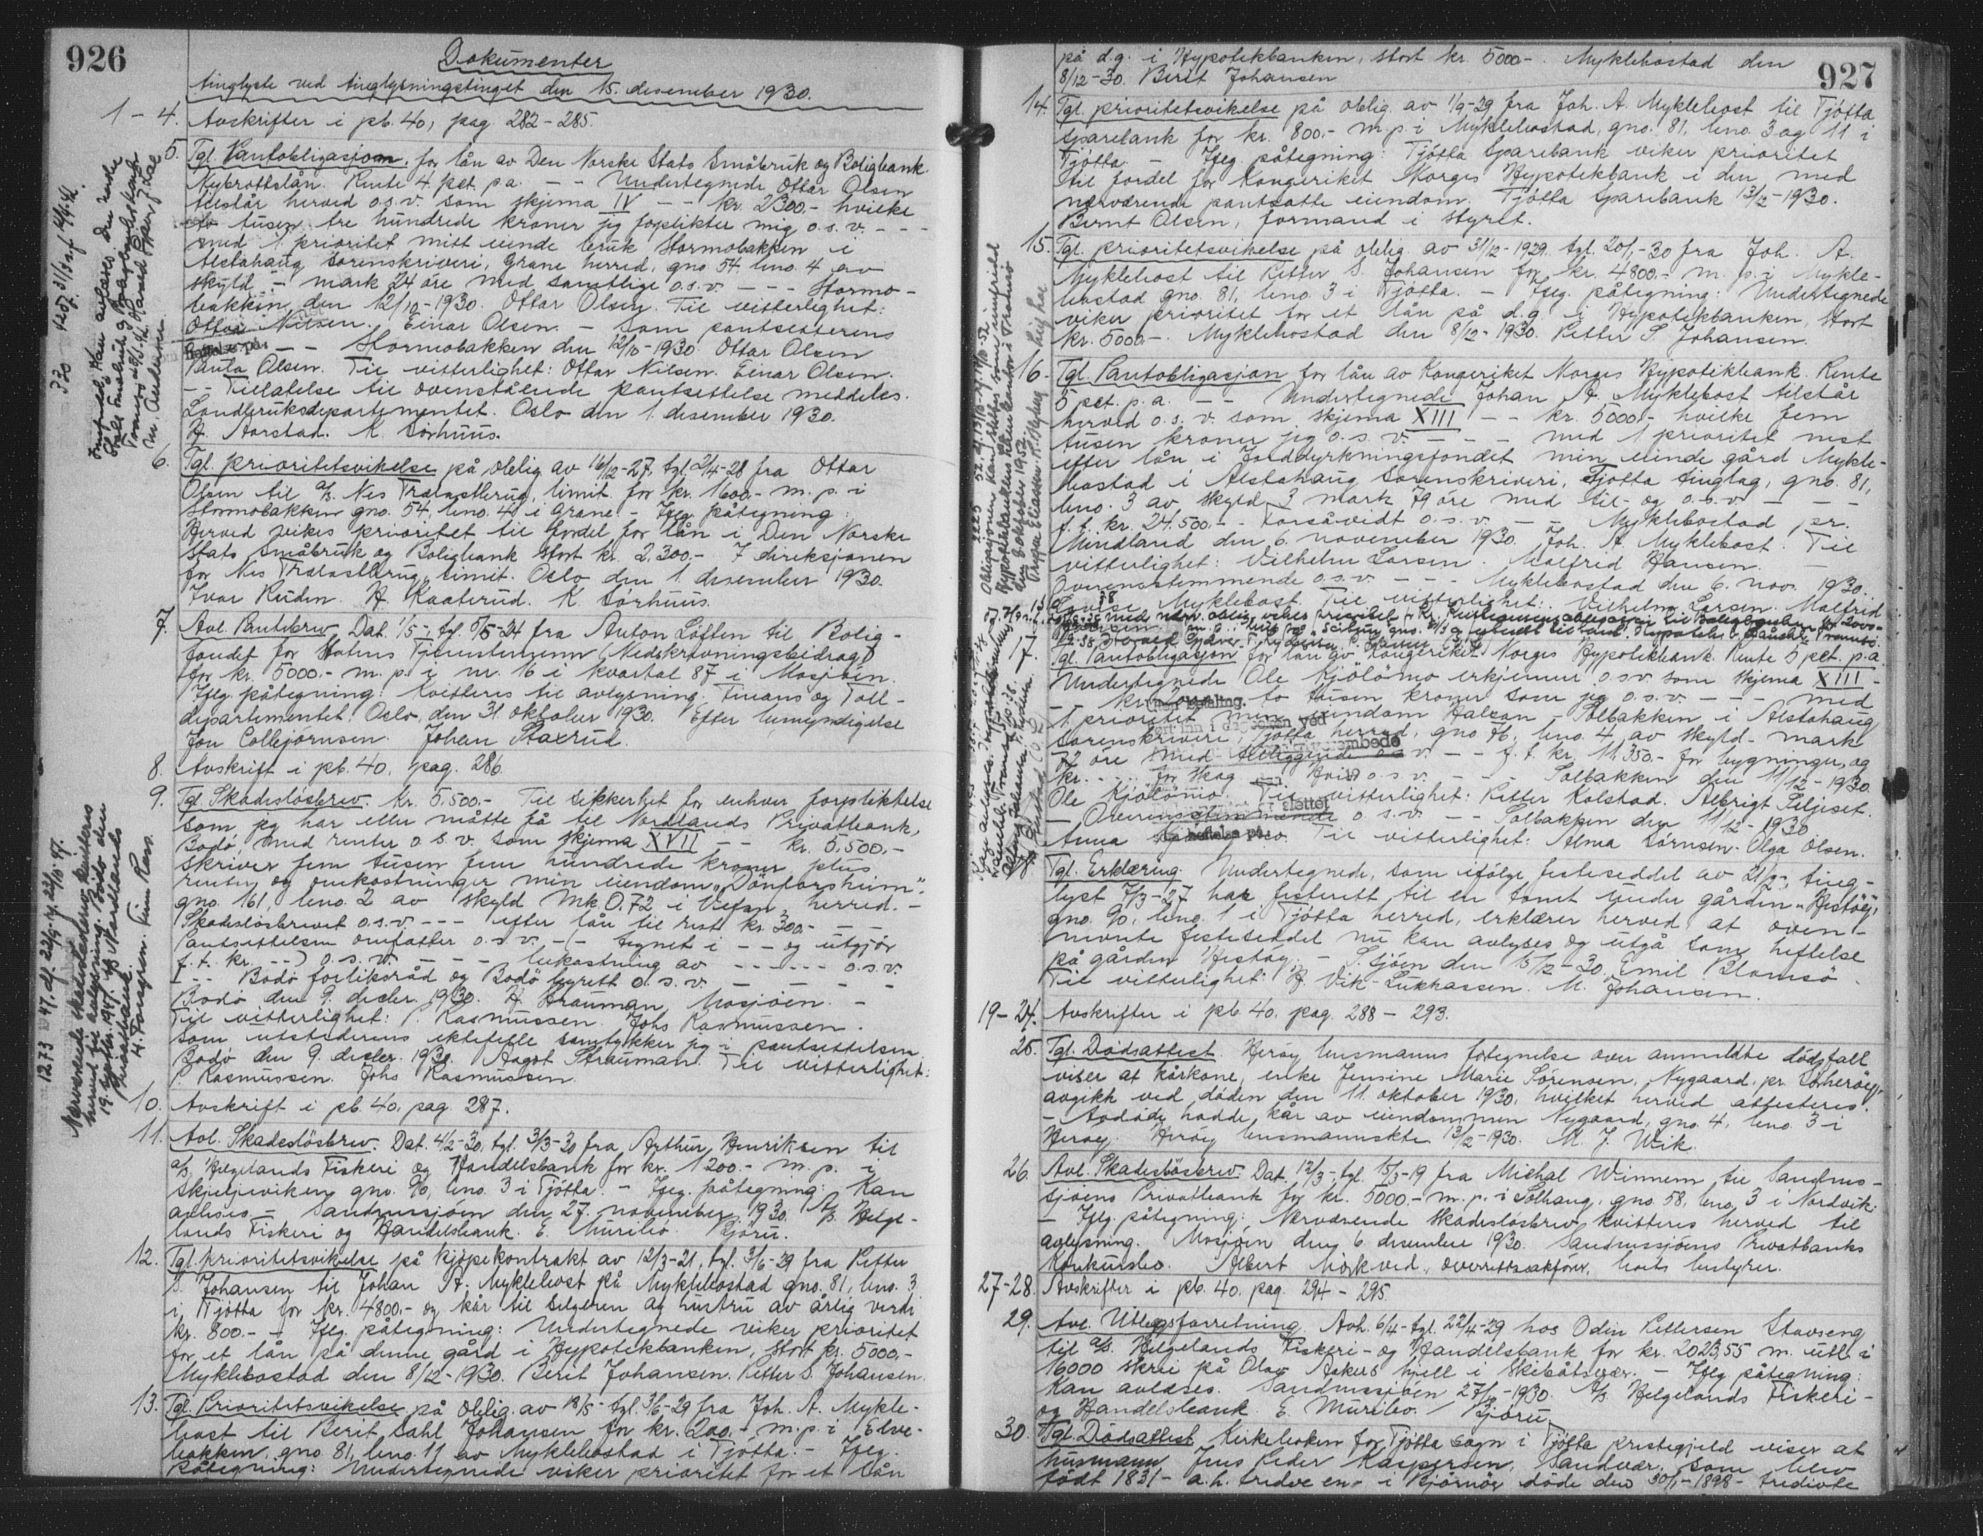 926
Dokumenter
tinglyste ved tinglysningstinget den 15. desember 1930.
1 - 4. Avskrifter i pb. 40, pag 282 - 285.
5. Tgl. Pantobligasjon for lån av Den Norske Stats Småbruk og Boligbank.
Nybrottslån. Rente 4 pct. p a. - - Undertegnede Ottar Olsen
tilstår herved o.s.v. som skjema IV - - kr. 2300.- hvilke
to tusen tre hundrede kroner jeg forplikter mig o.s.v. - - -
med 1 prioritet mitt eiende bruk Stormobakken i
Alstahaug sorenskriveri, Grane herred, gno. 54 bno. 4 av
skyld - mark 24 øre med samtlige o.s.v. - - - Stormo-
bakken den 12/10-1930. Ottar Olsen. Til vitterlighet:
Ottar Nilsen. Einar Olsen. - Som pantseierens
- - Stormobakken den 12/10-1930 Ottar Olsen
Paula Olsen. Til vitterlighet: Ottar Nilsen. Einar Olsen.
- - Tillatelse til ovenstående pantsettelse meddeles.
Landbruksdepartementet. Oslo den 1. desember 1930.
H. Aarstad. K. Sørhuus.
6. Tgl. prioritetsvikelse på oblig av 16/12-27. tgl. 2/4-28 fra Ottar
Olsen til a/s. Nes Trælastbrug, limit. for kr. 1600.- m. p. i
Stormobakken gno. 54 bno. 4 i Grane - Iflg. påtegning:
Herved vikes prioritet til fordel for lån i Den Norske
Stats Småbruk og Boligbank stort kr. 2.300.- I direksjonen
for Nes Trælastbrug, limit. Oslo den 1. desember 1930.
Ivar Ruden. H. Kaaterud. K. Sørhuus.
7. Avl. Pantebrev Dat. 1/5 - tgl. 5/5-24 fra Anton Løften til Bolig-
fondet for Statens Tjenestemenn (Nedskrivningsbidrag)
for kr. 5000.- m. p. i nr. 16 i kvartal 87 i Mosjøen.
Iflg. påtegning: Kvitteres til avlysning. Finans og Toll-
departementet. Oslo, den 31. oktober 1930. Efter bemyndigelse
Jon Collejørnsen. Johan Staxrud.
8. Avskrift i pb. 40. pag. 286.
9. Tgl. Skadesløsbrev. Kr. 5.500.- Til sikkerhet for enhver forpliktelse
som jeg har eller måtte få til Nordlands Privatbank,
Bodø, med renter o.s.v. som skjema XVII - - kr. 5.500.-
skriver fem tusen fem hundrede kroner plus
renter og omkostninger min eiendom "Dønforsheim".
gno. 161, bno. 2 av skyld Mk 0,72 i Vefsn herred. -
Skadesløsbrevet o.s.v. - - - efter lån til rest kr. 300.- - -
Pantsettelsen omfatter o.s.v. - - tegnet i - - og utgjør
f. t. kr. - - ) o.s.v. - - - bekostning av - - - - - - o.s.v.
I - - Bodø forliksråd og Bodø byrett o.s.v. - - - - - -
Bodø den 9. desbr. 1930. H. Strauman, Mosjøen. -
Til vitterlighet: P. Rasmussen. Johs Rasmussen.
Som utstederens ektefelle samtykker jeg i pantsettelsen.
Bodø den 9. desbr. 1930. Aagot Strauman. Til vitterlighet:
P. Rasmussen. Johs Rasmussen.
10. Avskrift i pb. 40, pag 287.
11. Avl. Skadesløsbrev. Dat. 4/2-30. tgl. 3/3-30 fra Arthur Henriksen til
a/s. Helgelands Fiskeri og Handelsbank for kr. 1200.- m. p. i
Skjeljeviken gno. 90, bno. 3 i Tjøtta. - Iflg. påtegning: Kan
avlises - Sandnessjøen den 27. november 1930. A/S. Helge-
lands Fiskeri og Handelsbank. E. Muribø Bjøru.
12. Tgl. prioritetsvikelse på kjøpekontrakt av 12/3-21, tgl. 3/6-29 fra Petter
S. Johansen til Johan A. Myklebost på Myklebostad gno. 81, bno. 3
i Tjøtta for kr. 4800.- og kår til selgeren og hustru av årlig verdi
kr. 800.- - Iflg. påtegning: Undertegnede viker prioritet
for et lån på denne gård i Hypotekbanken, stort kr. 5000.-
Myklebostad den 8/12-1930. Berit Johansen. Petter S. Johansen.
13. Tgl. Prioritetsvikelse på oblig. av 18/5 - tgl. 3/6-29 fra Joh. A. Mykle-
bost til Berit Dahl Johansen for kr. 200.- m. p. i Elve-
bakken, gno 81, bno. 11 av Myklebostad i Tjøtta. - Iflg.
påtegning: Undertegnede viker prioritet for et lån
927
på d.g. i Hypotekbanken, stort kr. 5000.-. Myklebostad den
8/12-30. Berit Johansen
14. Tgl. prioritetsvikelse på oblig. av 1/9-29 fra Joh. A. Myklebost til Tjøtta
Sparebank for kr. 800.- m. p. i Myklebostad, gno. 81, bno. 3 og 11 i
Tjøtta. - Iflg påtegning: Tjøtta Sparebank viker prioritet
til fordel for Kongeriket Norges Hypotekbank i den med
nærværende pantsatte eiendom. Tjøtta Sparebank 13/12-1930.
Bernt Olsen, formand i styret.
15. Tgl. prioritetsvikelse på oblig. av 31/12-1929. tgl. 20/1-30 fra Joh. A.
Myklebost til Petter S. Johansen for kr. 4800.- m. p. i Mykle-
bostad gno. 81, bno. 3 i Tjøtta. - Iflg. påtegning: Undertegnede
viker prioritet for et lån på d.g. i Hypotekbanken, stort
kr. 5000.-. Myklebostad den 8/12-1930. Petter S. Johansen.
16. Tgl. Pantobligasjon for lån av Kongeriket Norges Hypotekbank. Rente
5 pct. p. a. - - Undertegnede Johan A. Myklebost tilstår
herved o.s.v. som skjema XIII - - kr. 5000.- hvilke fem
tusen kroner jeg o.s.v. - - - - med 1 prioritet nest
efter lån i Jorddyrkningsfondet min eiende gård Mykle-
bostad i Alstahaug sorenskriveri, Tjøtta tinglag, gno. 81,
bno. 3 av skyld 3 mark 79 øre med til- og o.s.v. - -
f. t. kr. 24.500.- - Forsåvidt o.s.v. - - Myklebostad pr.
Mindland den 6. november 1930. Joh. A. Myklebost. Til
vitterlighet: Vilhelm Larsen. Malfred Hansen. -
Overensstemmende o.s.v. - - - Myklebostad den 6. nov. 1930.
Lovise Myklebost. Til vitterlighet: Vilhelm Larsen. Malfred
17. Tgl. Pantobligasjon for lån av Kongeriket Norges Hypotekbank. Rente 5 pct. p. a.
Undertegnede Ole Kjølømo erkjenner o.s.v. som skjema XIII -
- - kr. to tusen kroner som jeg o.s.v. - - - med
1 prioritet min eiendom Halsan - Solbakken i Alstahaug
sorenskriveri, Tjøtta herred, gno. 76, bno. 4, av skyld - mark
72 øre med tilliggende o.s.v. - - f. t. kr. 11.350.- for bygninger, og
kr. - - for skog - - Hvis o.s.v. - - - Solbakken den 11/12-1930.
Ole Kjølømo. Til vitterlighet: Petter Kolstad. Albrigt Seljeset.
- Overensstemmende o.s.v. - - Solbakken den 11/12-1930
Anna Kjølømo. Til vitterlighet: Alma Sørnsen. Olga Olsen.
Tgl. Erklæring. Undertegnede, som ifølge festeseddel av ting-
lyst 7/3-27 har festerett til en tomt under gården "Hestøy",
gno. 90, bno. 1 i Tjøtta herred, erklærer herved at oven-
nevnte festeseddel nu kan avlyses og utgå som heftelse
på gården Hestøy. - Stjøen den 15/12-30. Emil Blomsø.
Til vitterlighet: H Vik-Lukkassen. M. Johansen.
19-24. Avskrifter i pb. 40. pag. 288 - 293.
25. Tgl. Dødsattest. Herøy lensmanns fortegnelse over anmeldte dødsfall
viser at kårkone, enke Jensine Marie Sørensen, Nygaard, pr. Sørherøy,
avgikk ved døden den 11. oktober 1930, hvilket herved attesteres.
- Avdøde hadde kår av eiendommen Nygaard, gno. 4, bno. 3 i
Herøy. Herøy lensmannskt. 13/12-1930. M. J. Wik.
26. Avl. Skadesløsbrev. Dat. 12/3 - tgl. 15/3-19 fra Michal Winnem til Sandnes-
sjøens Privatbank for kr. 5000.- m. p. i Solhaug, gno 58, bno, 3 i Nordvik.
- Iflg. påtegning: Nærværende skadesløsbrev kvitteres herved til
avlysning. Mosjøen den 6. desember 1930. Sandnessjøens Privatbanks
konkursbo. Albert Mørkved, overrettssakfører, boets bestyrer.
27-28. Avskrifter i pb. 40. pag. 294 - 295
29. Avl. Utlegsforretning. Avh. 6/4 - tgl. 22/4-29 hos Odin Pettersen Stavseng
til a/s. Helgelands Fiskeri- og Handelsbank for kr. 2023,55 m. utl. i
16000 skrei på Olav Aakvis hjell i Skibåtsvær. - Iflg. påtegning:
Kan avløses. Sandnessjøen 27/11-1930. A/S Helgelands Fiskeri-
og Handelsbank. E. Muribø. / Bjøru.
30. Tgl. Dødsattest. Kirkeboken for Tjøtta sogn i Tjøtta prestegjeld viser at
husmann Jens Peder Kaspersen, Sandvær, som blev
født 1831 - a.h. tredve en - i Bjørnør døde den 30/1-1898 - trediote